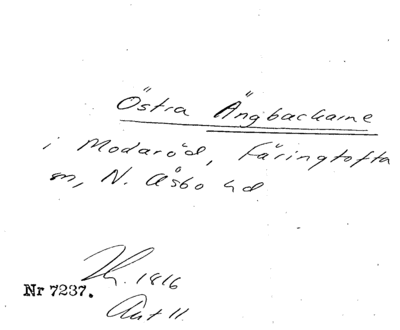 Östra Ängbackarne
i Modaröd, Färingtofta
sn, N. Åsbo hd
h. 1816
Nr 7237.
Akt 11